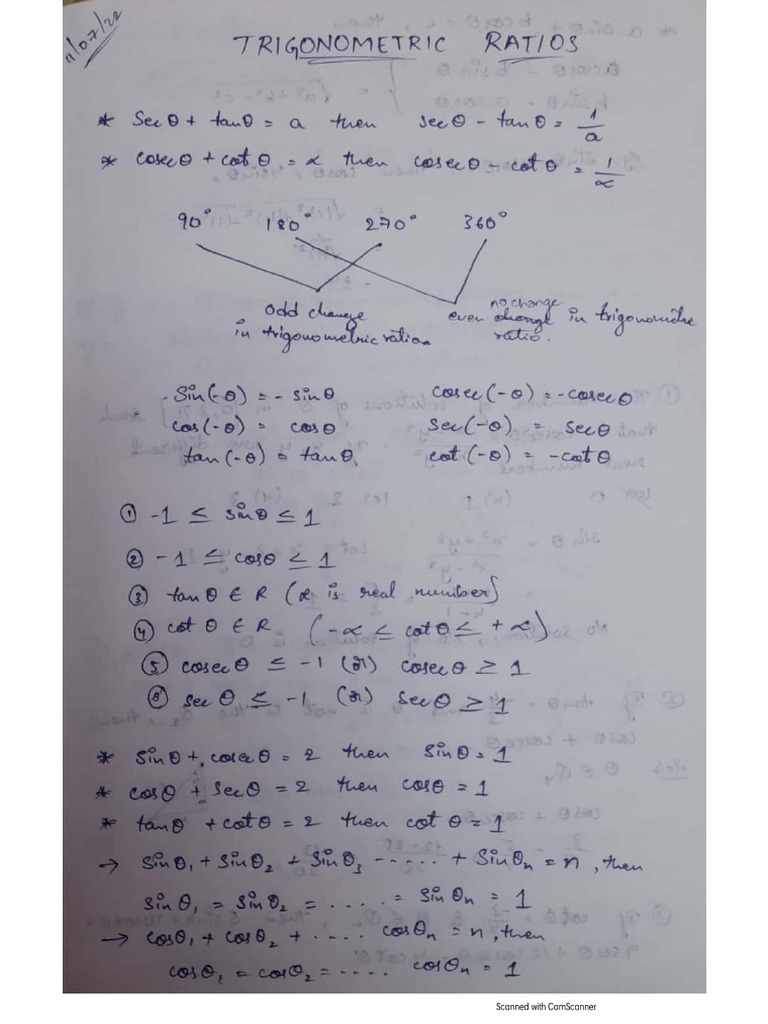 11/07/22
TRIGONOMETRIC RATIOS
* Secθ + tanθ = a then secθ - tanθ = 1/a
* cosecθ + cotθ = α then cosecθ - cotθ = 1/α
90° 180° 270° 360°
odd change in trigonometric ratio.
no change
even change in trigonometric ratio.
Sin(-θ) = - sinθ cosec(-θ) = -cosecθ
cos(-θ) = cosθ sec(-θ) = secθ
tan(-θ) = tanθ cot(-θ) = -cotθ
① -1 ≤ sinθ ≤ 1
② -1 ≤ cosθ ≤ 1
③ tanθ ∈ R (R is real number)
④ cotθ ∈ R (-α ≤ cotθ ≤ +α)
⑤ cosecθ ≤ -1 (or) cosecθ ≥ 1
⑥ secθ ≤ -1 (or) secθ ≥ 1
* sinθ + cosecθ = 2 then sinθ = 1
* cosθ + secθ = 2 then cosθ = 1
* tanθ + cotθ = 2 then cotθ = 1
→ sinθ₁ + sinθ₂ + sinθ₃ ----- + sinθₙ = n, then
sinθ₁ = sinθ₂ = ..... = sinθₙ = 1
→ cosθ₁ + cosθ₂ + ..... cosθₙ = n, then
cosθ₁ = cosθ₂ = ---- cosθₙ = 1
Scanned with CamScanner